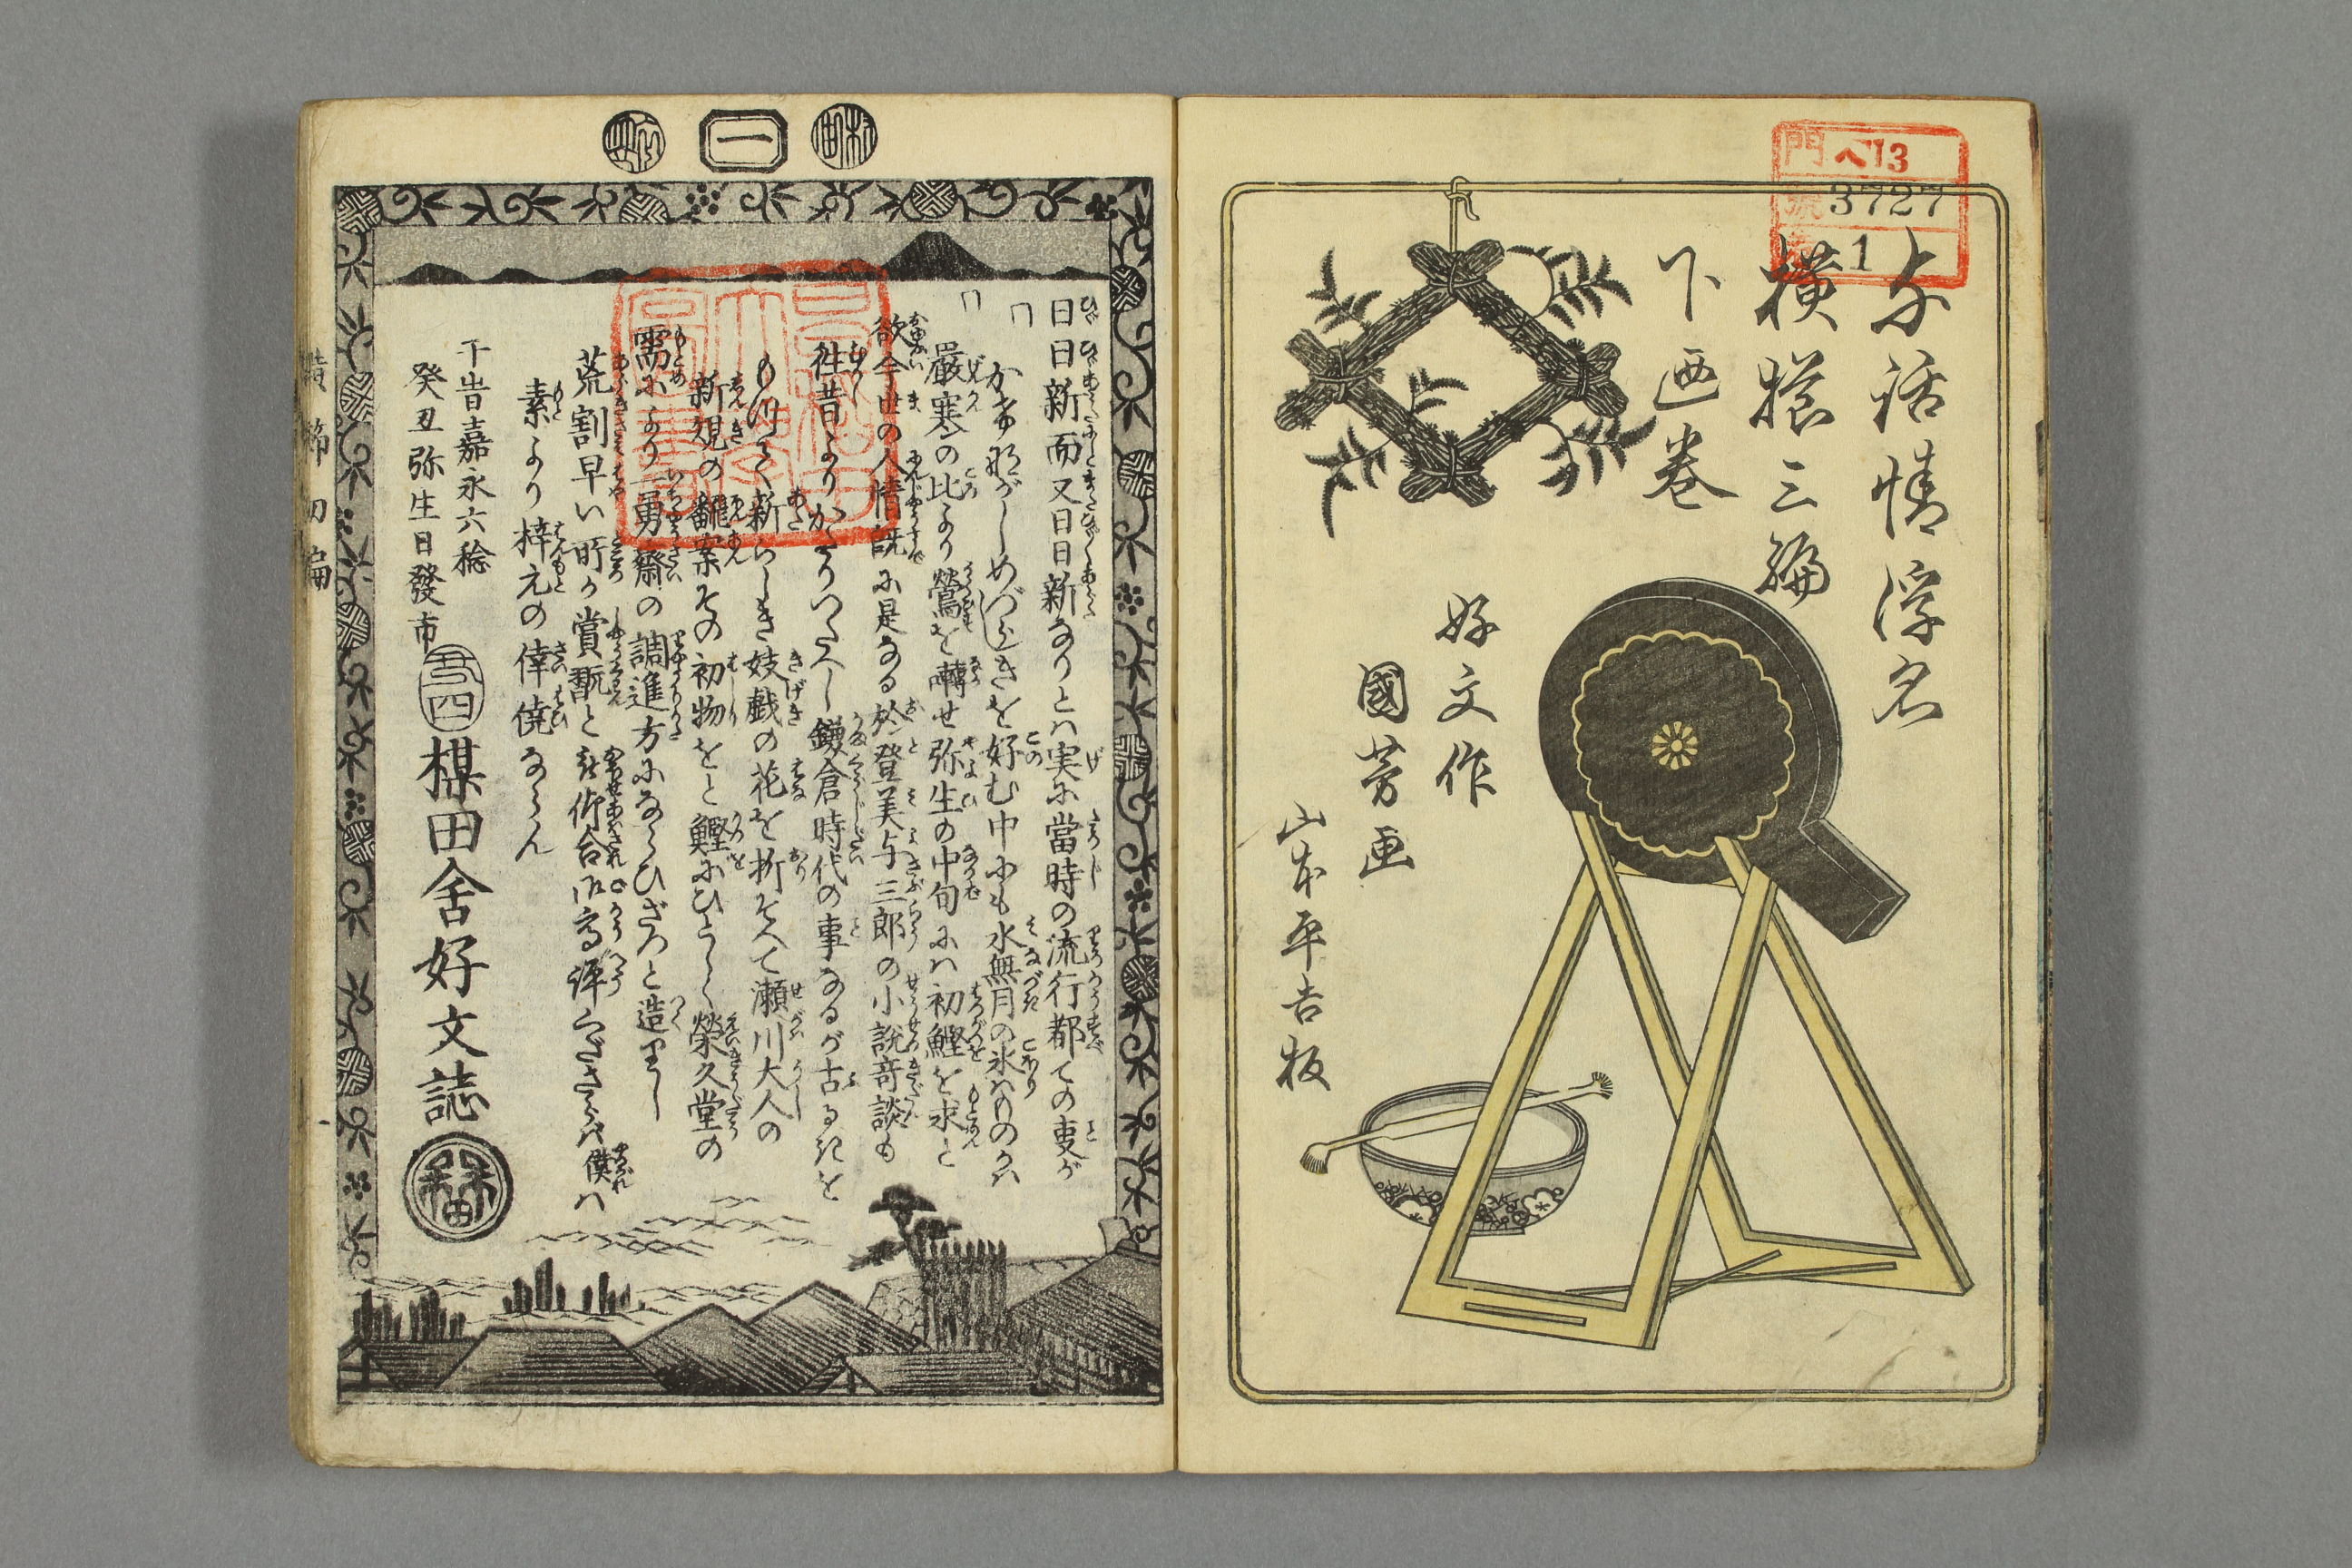 門 ヘ13
號 3727
1
与話情浮名
横櫛三編
下画巻
好文作
國芳画
山本平吉板
一
日日新而又日日新なりとハ実に當時の流行都ての吏が
好む中にも水無月の氷ハ
嚴寒の比より鶯を囀せ弥生の中旬にハ初鰹を求と
欲今世の人情既に是なる於登美与三郎の小説奇談も
往昔より鎌倉時代の事なるが古るきを
新らしき妓戯の花を折そへて瀬川大人の
新規の飜案その初物をと鰹にひとしく榮久堂の
需により一勇齋の調進方にならひざつと造りし
荒割早い所が賞翫と
素より梓元の倖僥ならん
干時嘉永六稔
癸丑弥生日發市
楳田舎好文誌
横櫛初編